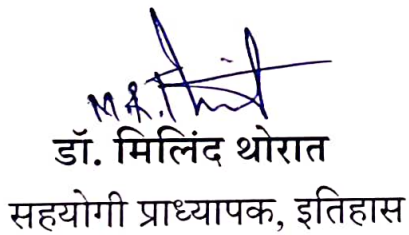 डॉ. मिलिंद थोरात
सहयोगी प्राध्यापक, इतिहास